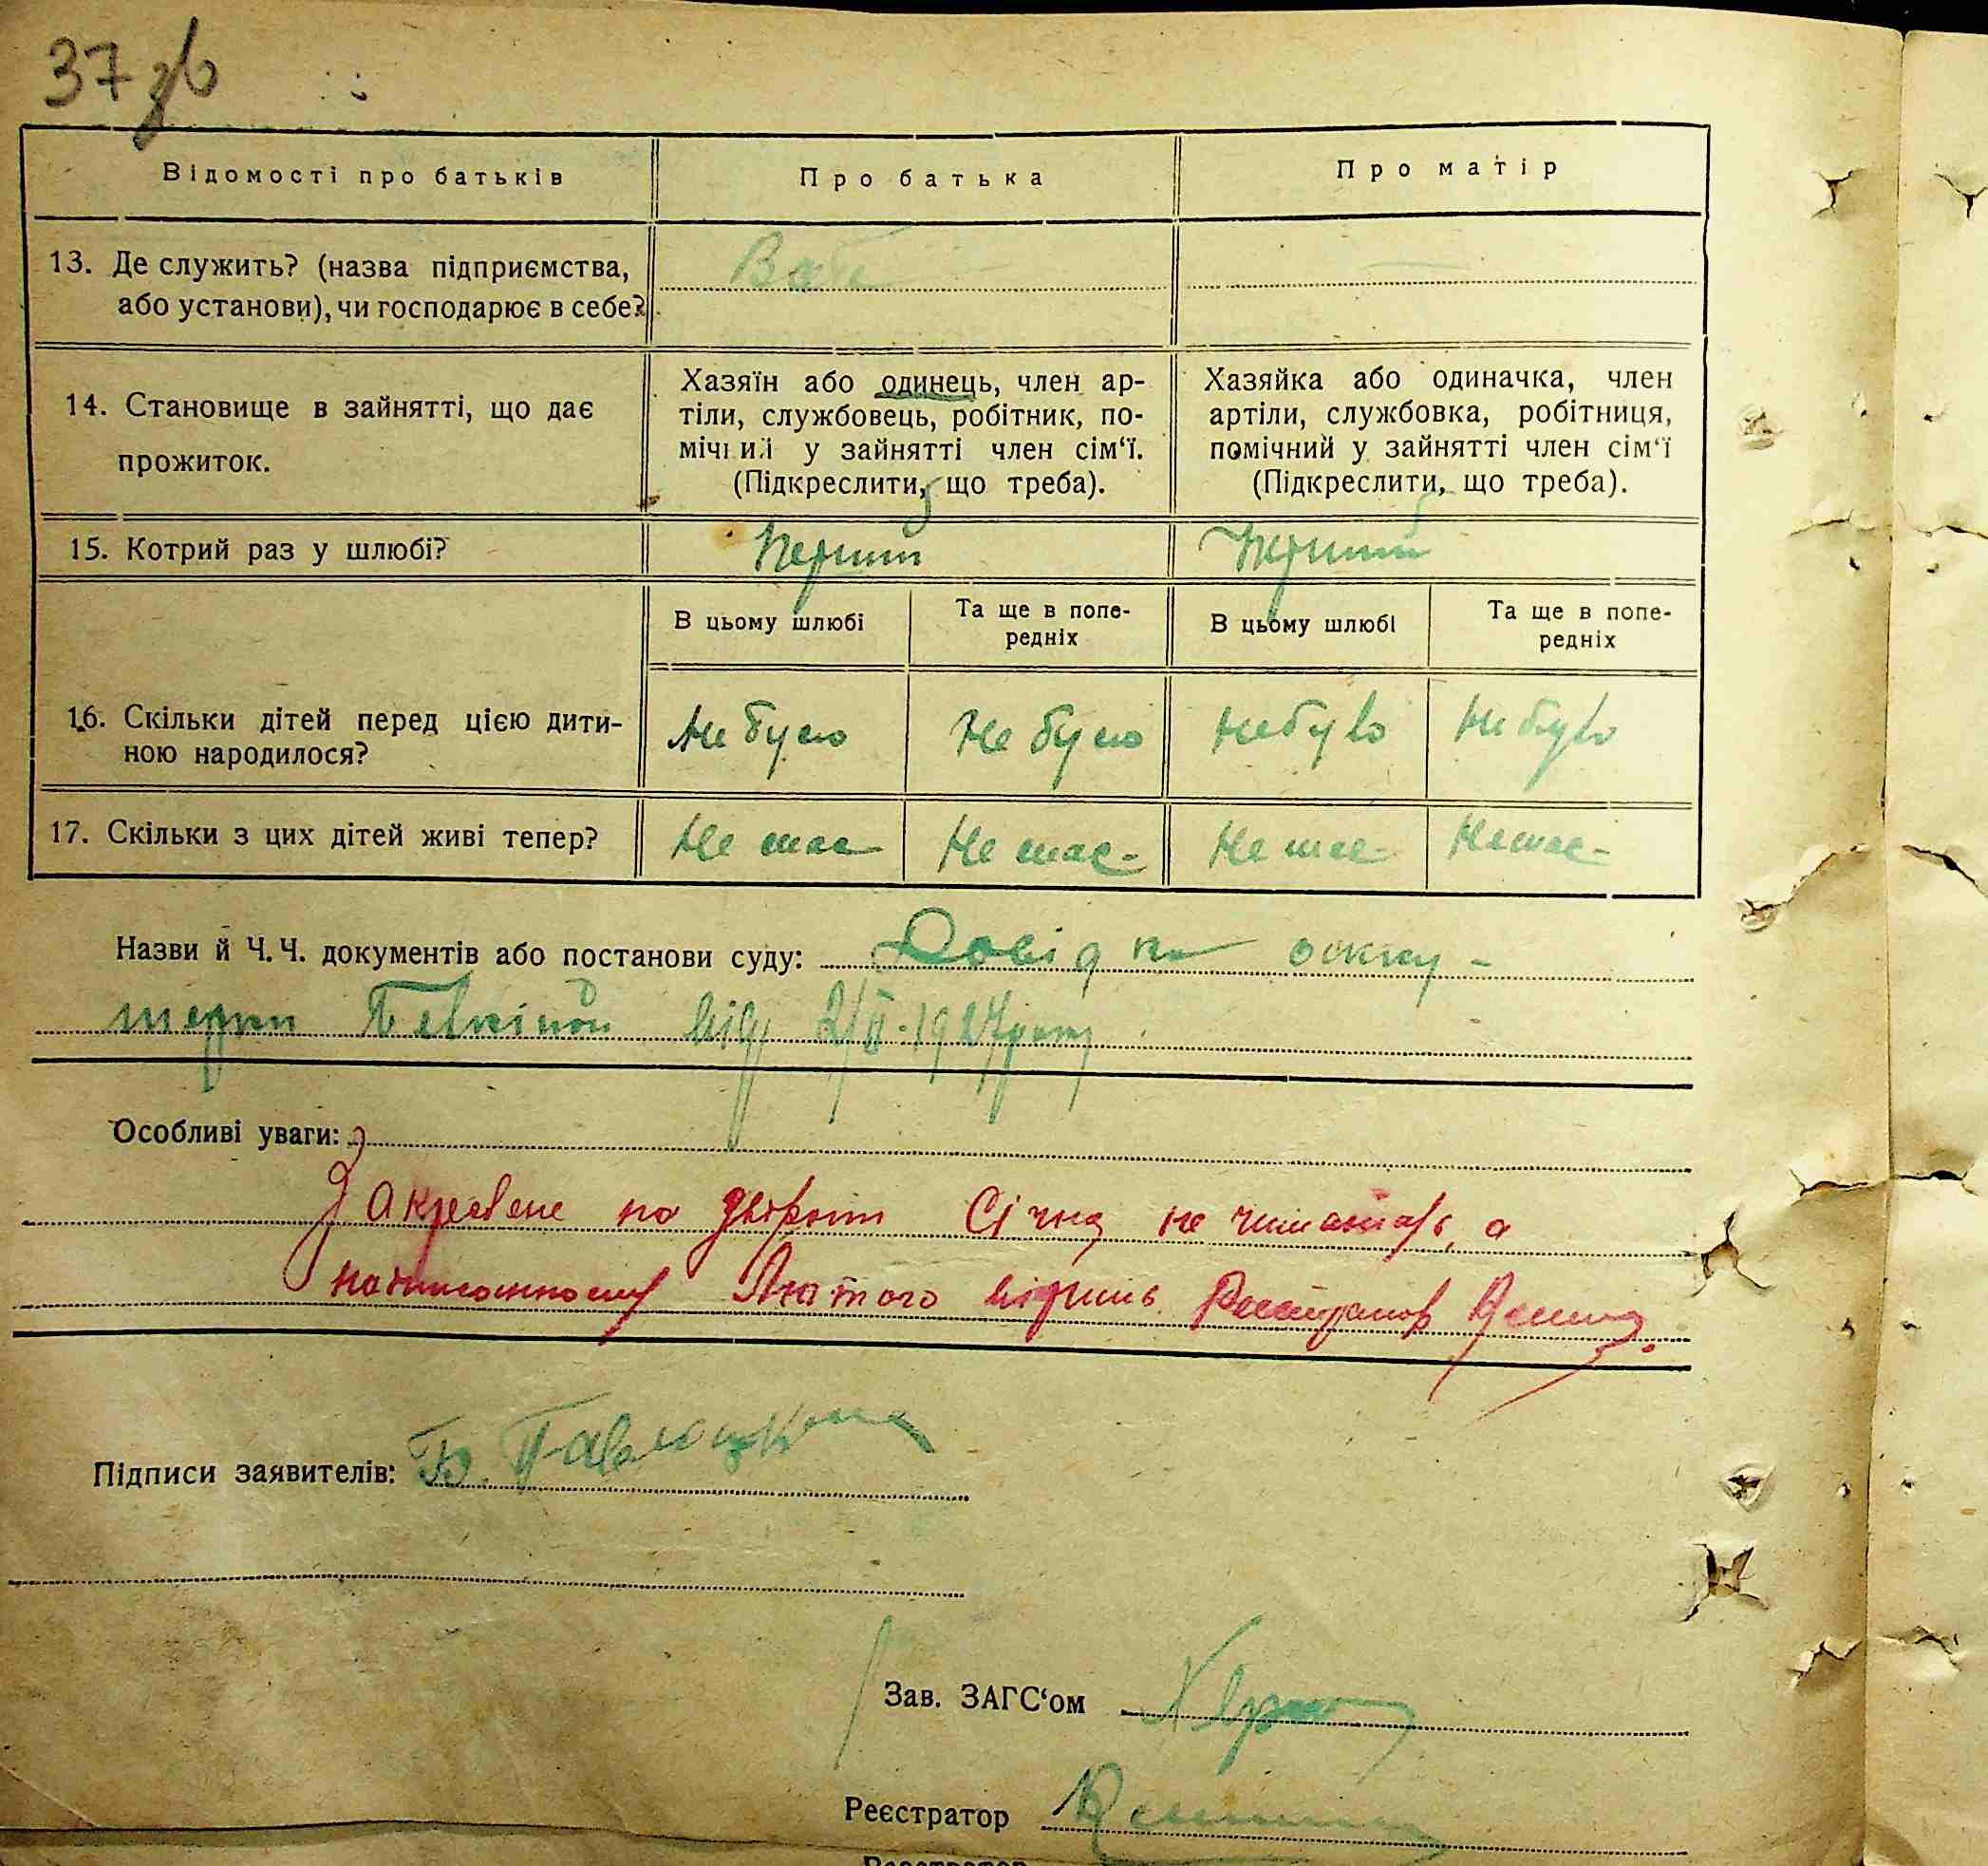 37 зв
Відомості про батьків
Про батька
Про матір
13. Де служить? (назва підприємства,
або установи), чи господарює в себе?
14. Становище в зайнятті, що дає
прожиток.
Хазяїн або одинець, член ар-
тіли, службовець, робітник, по-
мічний у зайнятті член сім‘ї.
(Підкреслити, що треба).
Хазяйка або одиначка, член
артіли, службовка, робітниця,
помічний у зайнятті член сім‘ї
(Підкреслити, що треба).
15. Котрий раз у шлюбі?
Перший
Перший
В цьому шлюбі
Та ще в попе-
редніх
В цьому шлюбі
Та ще в попе-
редніх
16. Скільки дітей перед цією дити-
ною народилося?
Не було
Не було
Не було
Не було
17. Скільки з цих дітей живі тепер?
Не має
Не має-
Не має-
Не має-
Назви й Ч.Ч. документів або постанови суду: Довідка акку-
шерки від 2/II-1927 року
Особливі уваги:
Закреслене на звороті Січня не читать, а
надписанному Лютого вірить. Реєстратор
Підписи заявителів: Б.
Зав. ЗАГС‘ом
Реєстратор
Реєстратор